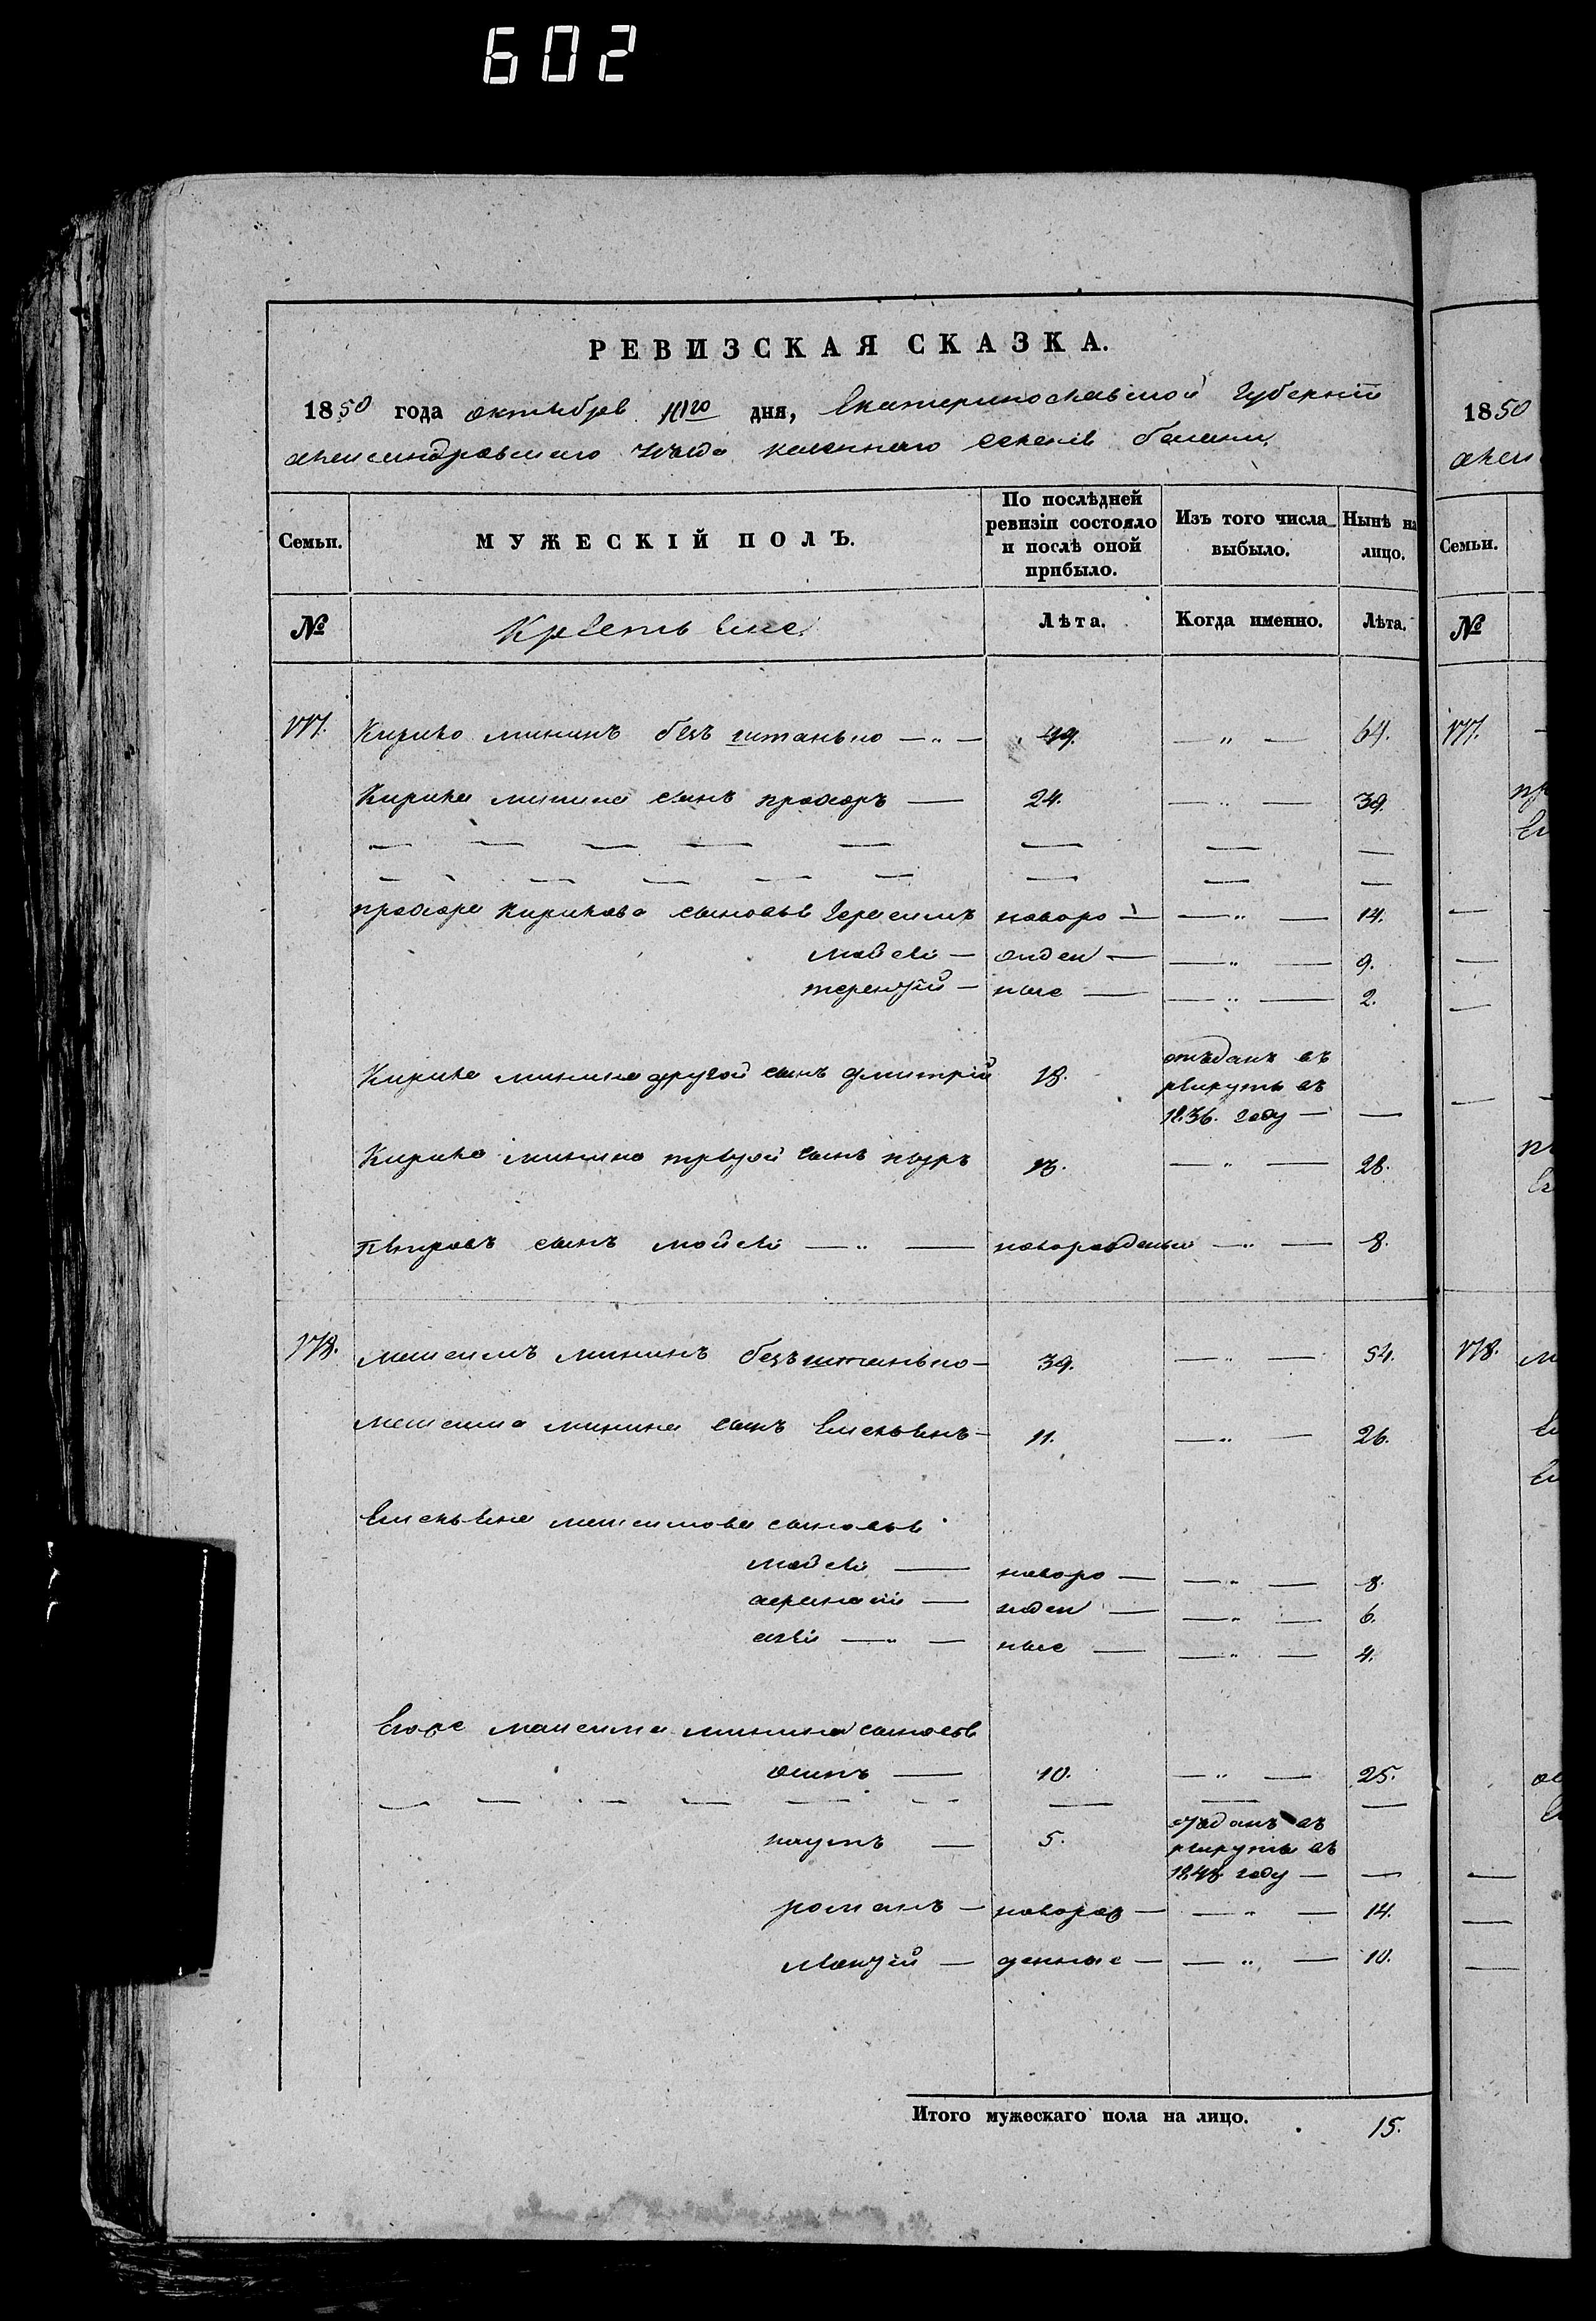 602
РЕВИЗСКАЯ СКАЗКА.
1850 года октября 10го дня, Екатеринославской Губерніи
александровскаго уѣзда казеннаго селенія
Семьи. МУЖЕСКІЙ ПОЛЪ. По послѣдней ревизіи состояло и послѣ оной прибыло. Изъ того числа выбыло. Нынѣ на лицо.
№ Лѣта. Когда именно. Лѣта.
177. Кирико мининъ безъ штанько — „ — 49. — „ — 64.
Кирика минина сынъ прохоръ — 24. — „ — 39.
прохора кирикова сыновья Герасимъ новоро — — „ — 14.
мойсей — жден — — „ — 9.
терентій — ные — — „ — 2.
Кирика минина другой сынъ дмитрій 18. отъданъ въ
рекруты въ
1836. году — —
Кирика минина третій сынъ петръ 13. — „ — 28.
Петровъ сынъ мойсей — „ — новорожденый — „ — 8.
178. максимъ мининъ безъштанько — 39. — „ — 54.
максима минина сынъ Емельянъ — 11. — „ — 26.
Емельяна максимова сыновья
мойсей — новоро — — „ — 8.
жден — — „ — 6.
ные — — „ — 4.
Еще максима минина сыновья
осипъ — 10. — „ — 25.
наумъ — 5. отданъ въ
рекруты въ
1848 году — —
романъ — новорож — — „ — 14.
денные — — „ — 10.
Итого мужескаго пола на лицо. 15.
1850
Семьи.
№
177.
178.